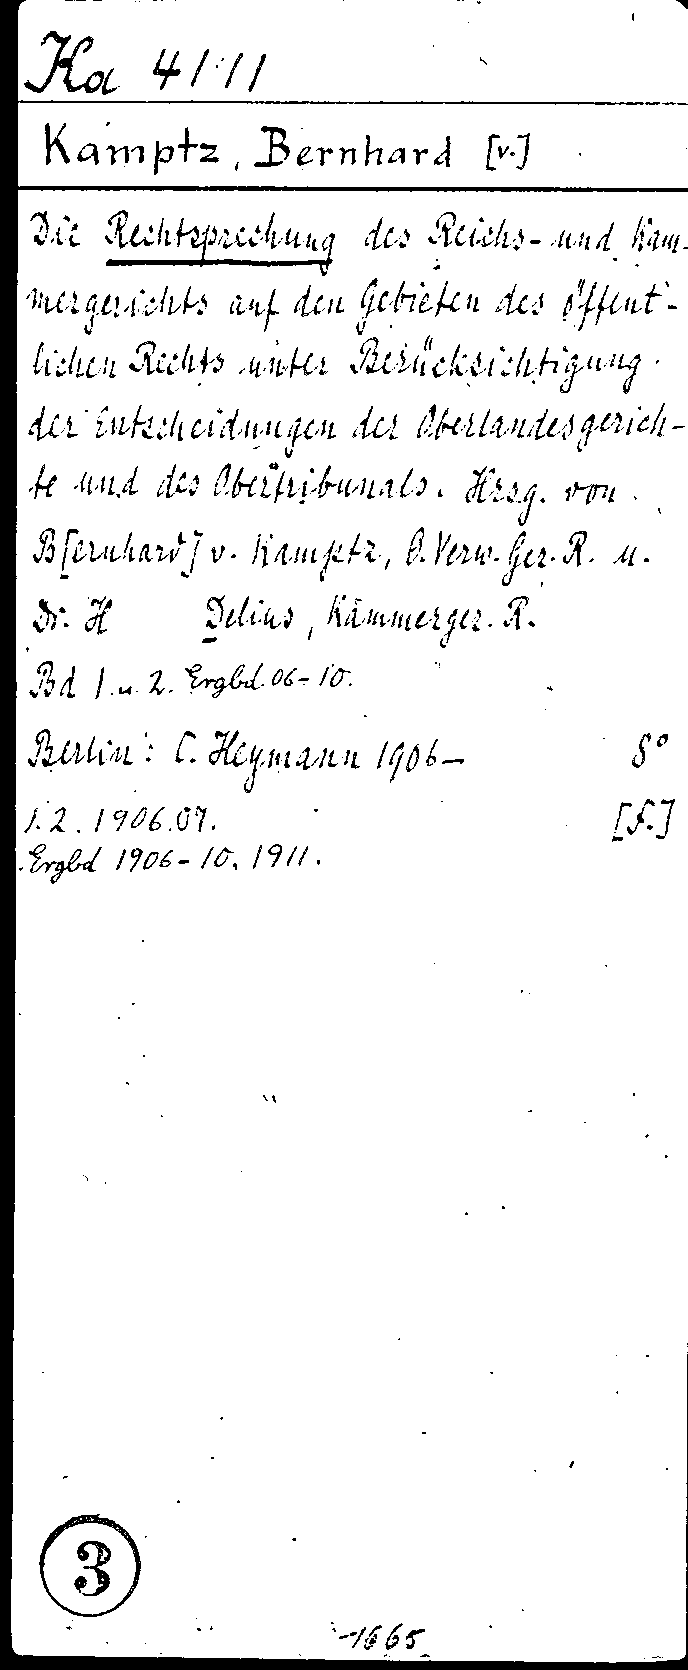 Ka 4111
Kamptz, Bernhard [v.]
Die Rechtsprechung des Reichs- und Kam-
mergerichts auf den Gebieten des öffent-
lichen Rechts unter Berücksichtigung
der Entscheidungen der Oberlandesgerich-
te und des Obertribunals. Hrsg. von
B[ernhard] v. Kamptz, O. Verw. Ger. R. u.
Dr. H Delius, Kammerger. R.
Bd 1 u. 2. Ergbd 06-10.
Berlin: C. Heymann 1906- 8°
1.2. 1906.07. [F.]
Ergbd 1906-10. 1911.
3
-1665